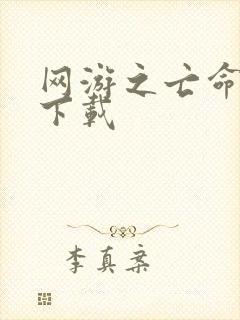 网游之亡命
下载
李真案